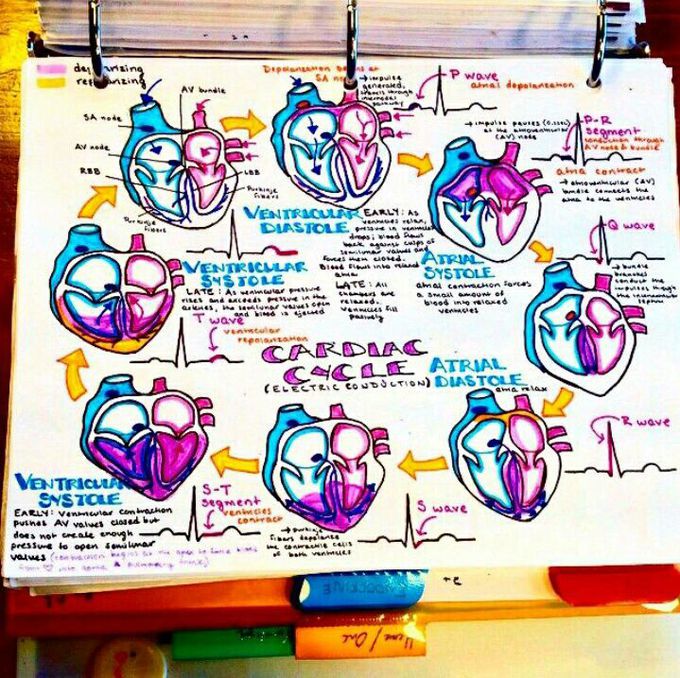 depolarizing
repolarizing
SA node
AV bundle
AV node
RBB
LBB
Purkinje
fibers
Purkinje
fibers
Depolarization begins at
SA node
→ impulse
generated,
travels through
internodal
pathway
P wave
atrial depolarization
→ impulse pauses (0.1 sec)
at the atrioventricular
(AV) node
P-R
segment
conduction through
AV node & bundle
atria contract
→ atrioventricular (AV)
bundle connects the
atria to the ventricles
Q wave
→ bundle
branches
conduct the
impulses through
the interventricular
septum
VENTRICULAR
DIASTOLE
EARLY: As
ventricles relax,
pressure in ventricles
drops; blood flows
back against cusps of
semilunar valves and
forces them closed.
Blood flows into relaxed
atria.
LATE: All
chambers are
relaxed.
ventricles fill
passively
ATRIAL
SYSTOLE
atrial contraction forces
a small amount of
blood into relaxed
ventricles
VENTRICULAR
SYSTOLE
LATE: As ventricular pressure
rises and exceeds pressure in the
arteries, the semilunar valves open
and blood is ejected
T wave
ventricular
repolarization
CARDIAC
CYCLE
(ELECTRIC CONDUCTION)
ATRIAL
DIASTOLE
atria relax
R wave
S wave
→ purkinje
fibers depolarize
the contractile cells
of both ventricles
S-T
segment
ventricles
contract
VENTRICULAR
SYSTOLE
EARLY: Ventricular contraction
pushes AV valves closed but
does not create enough
pressure to open semilunar
valves (contraction begins at the apex to force blood
from ♡ into aorta & pulmonary trunk)
ENDOCRINE